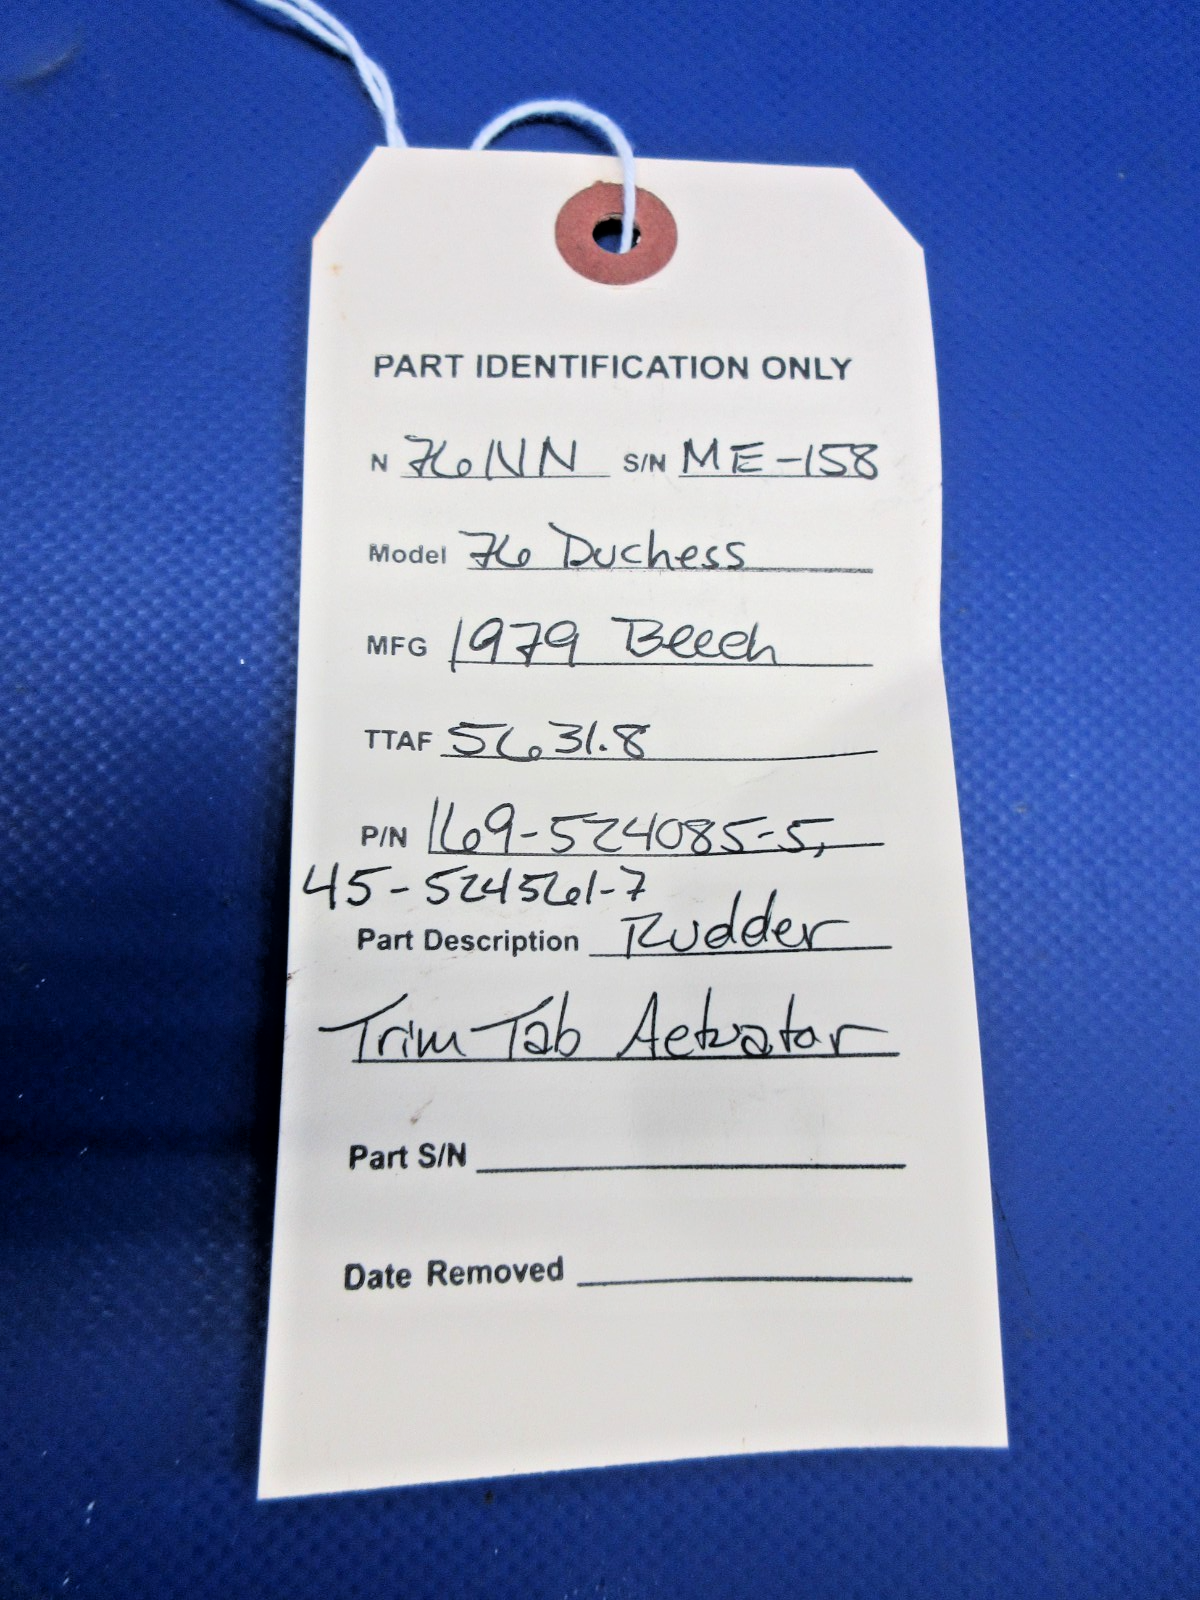 PART IDENTIFICATION ONLY
N 761NN S/N ME-158
Model 76 Duchess
MFG 1979 Beech
TTAF 5631.8
P/N 169-524085-5,
45-524561-7
Part Description Rudder
Trim Tab Actuator
Part S/N
Date Removed